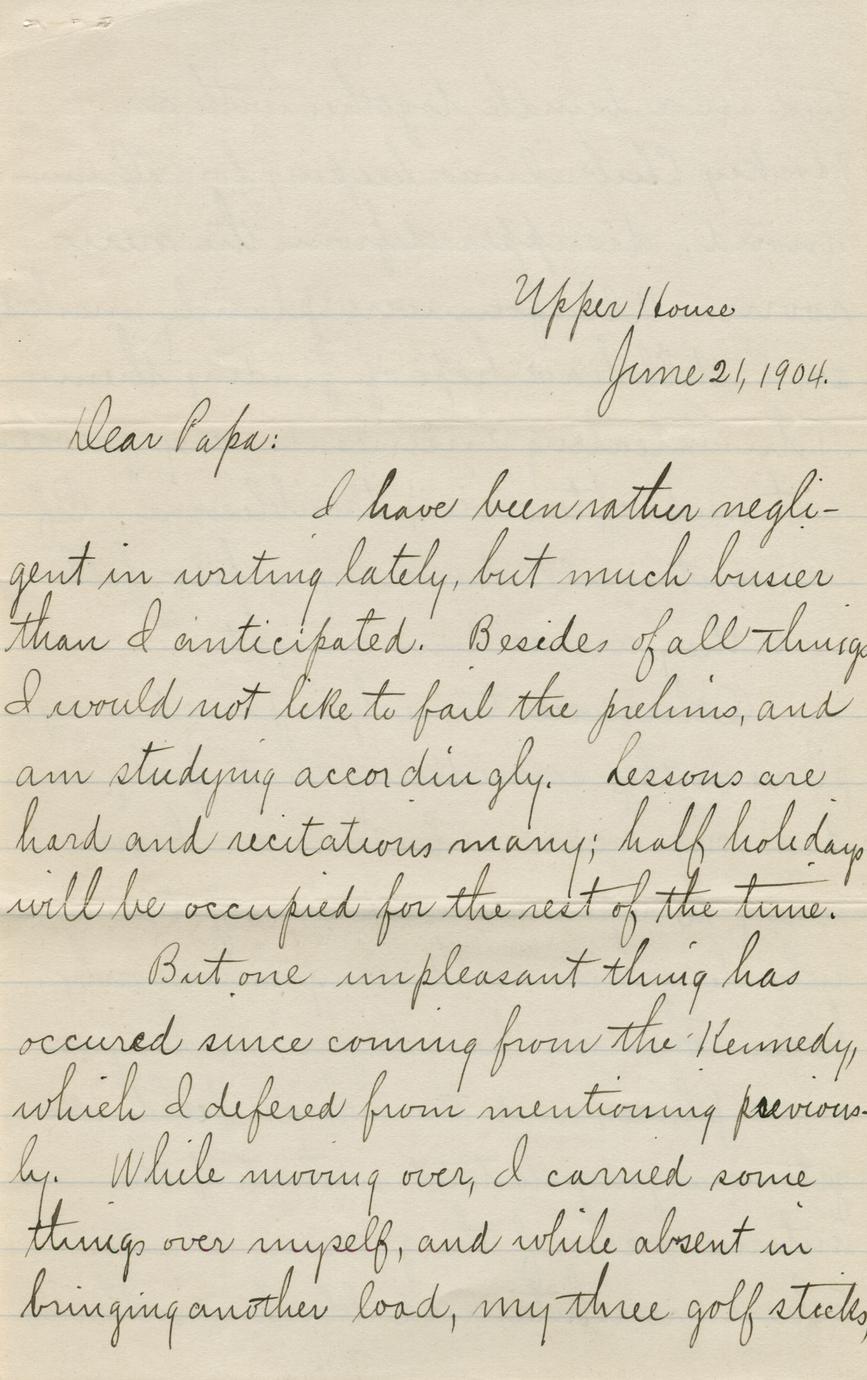 Upper House
June 21, 1904.
Dear Papa:
I have been rather negli-
gent in writing lately, but much busier
than I anticipated. Besides of all things
I would not like to fail the prelims, and
am studying accordingly. Lessons are
hard and recitations many; half holidays
will be occupied for the rest of the time.
But one unpleasant thing has
occured since coming from the Kennedy,
which I defered from mentioning previous-
ly. While moving over, I carried some
things over myself, and while absent in
bringing another load, my three golf sticks,